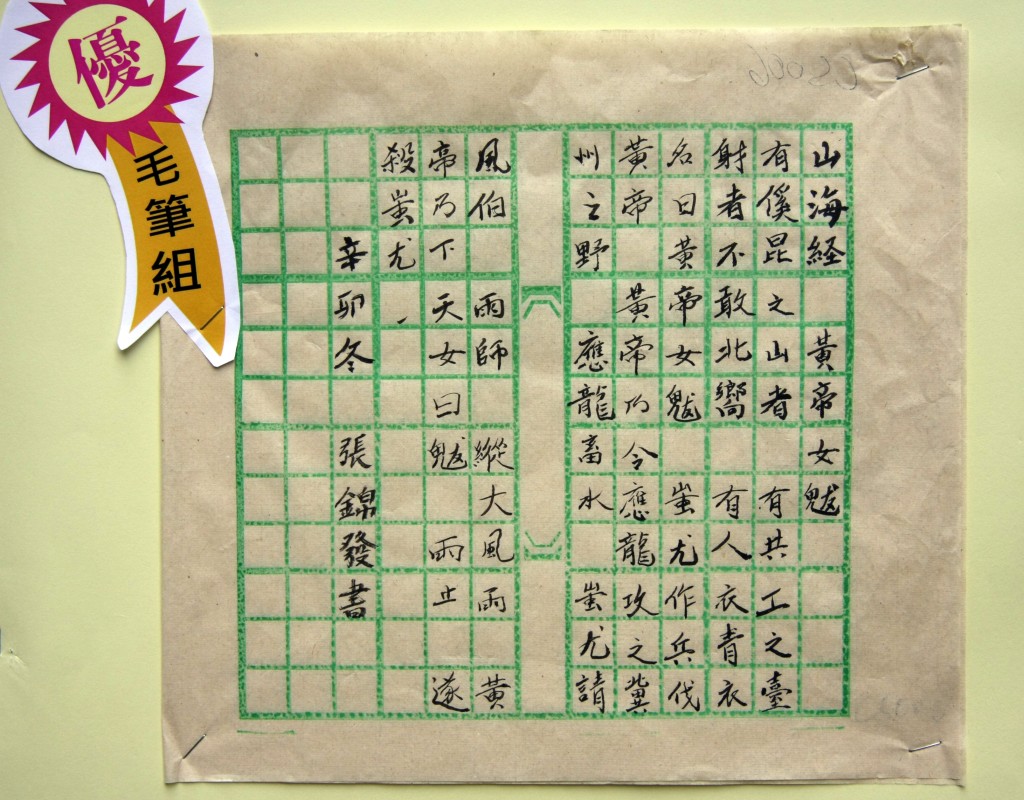 優
毛筆組
山海経 黃帝女魃
有傒昆之山者 有共工之臺
射者不敢北嚮 有人衣青衣
名曰黃帝女魃 蚩尤作兵伐
黃帝 黃帝乃令應龍攻之冀
州之野 應龍畜水 蚩尤請
風伯 雨師 縱大風雨 黃
帝乃下天女曰魃 雨止 遂
殺蚩尤、
辛卯冬 張錦發書